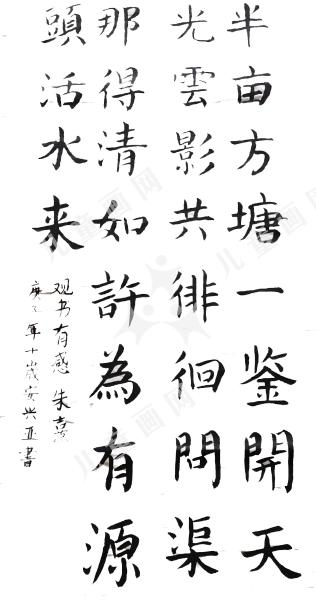 半亩方塘一鉴開天
光雲影共徘徊問渠
那得清如許為有源
頭活水来
观书有感 朱熹
庚子年十歲安兴亚書
儿童画网